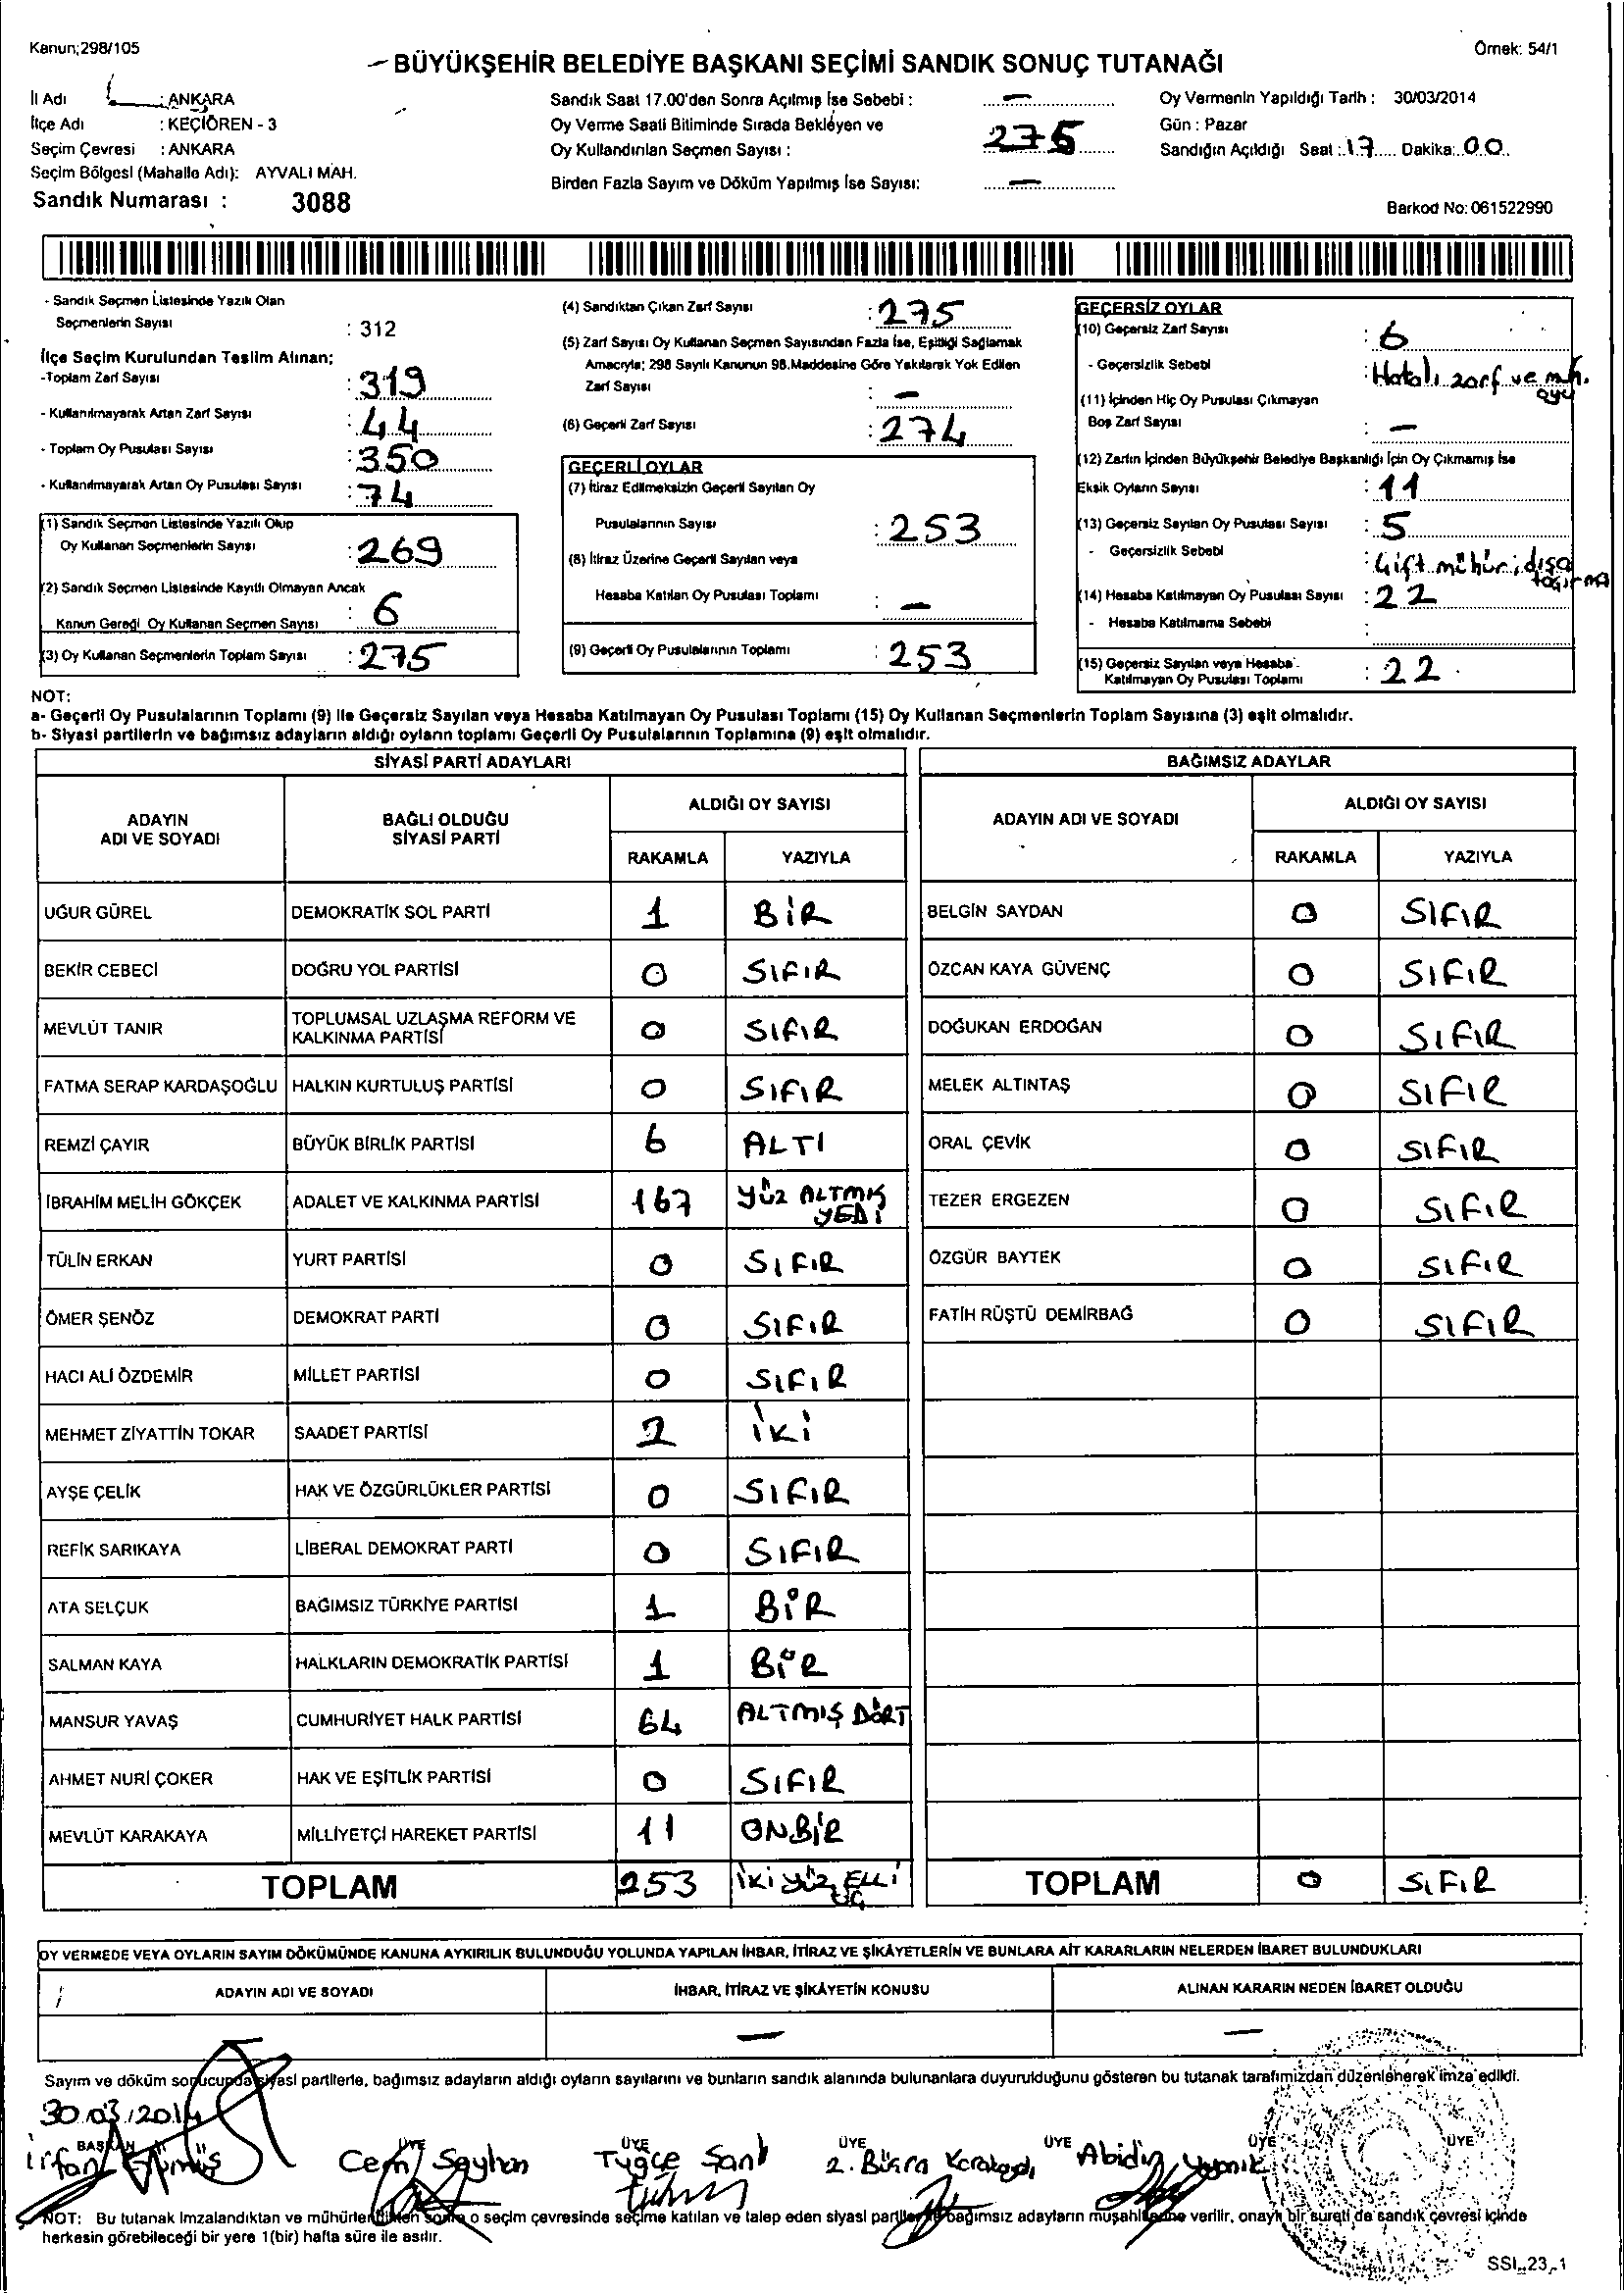 Kanun;298/105
Örnek: 54/1
BÜYÜKŞEHİR BELEDİYE BAŞKANI SEÇİMİ SANDIK SONUÇ TUTANAĞI
İl Adı : ANKARA
İlçe Adı : KEÇİÖREN - 3
Seçim Çevresi : ANKARA
Seçim Bölgesi (Mahalle Adı): AYVALI MAH.
Sandık Numarası : 3088
Sandık Saat 17.00'den Sonra Açılmış İse Sebebi : —
Oy Verme Saati Bitiminde Sırada Bekleyen ve
Oy Kullandırılan Seçmen Sayısı : 275
Birden Fazla Sayım ve Döküm Yapılmış İse Sayısı: —
Oy Vermenin Yapıldığı Tarih : 30/03/2014
Gün : Pazar
Sandığın Açıldığı Saat : 17 Dakika: 00
Barkod No: 061522990
- Sandık Seçmen Listesinde Yazılı Olan
Seçmenlerin Sayısı : 312
İlçe Seçim Kurulundan Teslim Alınan;
-Toplam Zarf Sayısı : 319
- Kullanılmayarak Artan Zarf Sayısı : 44
- Toplam Oy Pusulası Sayısı : 350
- Kullanılmayarak Artan Oy Pusulası Sayısı : 74
(1) Sandık Seçmen Listesinde Yazılı Olup
Oy Kullanan Seçmenlerin Sayısı : 269
(2) Sandık Seçmen Listesinde Kayıtlı Olmayan Ancak
Kanun Gereği Oy Kullanan Seçmen Sayısı : 6
(3) Oy Kullanan Seçmenlerin Toplam Sayısı : 275
(4) Sandıktan Çıkan Zarf Sayısı : 275
(5) Zarf Sayısı Oy Kullanan Seçmen Sayısından Fazla İse, Eşitliği Sağlamak
Amacıyla; 298 Sayılı Kanunun 98.Maddesine Göre Yakılarak Yok Edilen
Zarf Sayısı : —
(6) Geçerli Zarf Sayısı : 274
GEÇERLİ OYLAR
(7) İtiraz Edilmeksizin Geçerli Sayılan Oy
Pusulalarının Sayısı : 253
(8) İtiraz Üzerine Geçerli Sayılan veya
Hesaba Katılan Oy Pusulası Toplamı : —
(9) Geçerli Oy Pusulalarının Toplamı : 253
GEÇERSİZ OYLAR
(10) Geçersiz Zarf Sayısı : 6
- Geçersizlik Sebebi : Hatalı zarf ve mh. oyu
(11) İçinden Hiç Oy Pusulası Çıkmayan
Boş Zarf Sayısı : —
(12) Zarfın İçinden Büyükşehir Belediye Başkanlığı İçin Oy Çıkmamış İse
Eksik Oyların Sayısı : 11
(13) Geçersiz Sayılan Oy Pusulası Sayısı : 5
- Geçersizlik Sebebi : Çift mühür; dışa taşırma
(14) Hesaba Katılmayan Oy Pusulası Sayısı : 22
- Hesaba Katılmama Sebebi :
(15) Geçersiz Sayılan veya Hesaba
Katılmayan Oy Pusulası Toplamı : 22
NOT:
a- Geçerli Oy Pusulalarının Toplamı (9) ile Geçersiz Sayılan veya Hesaba Katılmayan Oy Pusulası Toplamı (15) Oy Kullanan Seçmenlerin Toplam Sayısına (3) eşit olmalıdır.
b- Siyasi partilerin ve bağımsız adayların aldığı oyların toplamı Geçerli Oy Pusulalarının Toplamına (9) eşit olmalıdır.
SİYASİ PARTİ ADAYLARI
ADAYIN ADI VE SOYADI BAĞLI OLDUĞU SİYASİ PARTİ ALDIĞI OY SAYISI
RAKAMLA YAZIYLA
UĞUR GÜREL DEMOKRATİK SOL PARTİ 1 BİR
BEKİR CEBECİ DOĞRU YOL PARTİSİ 0 SIFIR
MEVLÜT TANIR TOPLUMSAL UZLAŞMA REFORM VE KALKINMA PARTİSİ 0 SIFIR
FATMA SERAP KARDAŞOĞLU HALKIN KURTULUŞ PARTİSİ 0 SIFIR
REMZİ ÇAYIR BÜYÜK BİRLİK PARTİSİ 6 ALTI
İBRAHİM MELİH GÖKÇEK ADALET VE KALKINMA PARTİSİ 167 YÜZ ALTMIŞ YEDİ
TÜLİN ERKAN YURT PARTİSİ 0 SIFIR
ÖMER ŞENÖZ DEMOKRAT PARTİ 0 SIFIR
HACI ALİ ÖZDEMİR MİLLET PARTİSİ 0 SIFIR
MEHMET ZİYATTİN TOKAR SAADET PARTİSİ 2 İKİ
AYŞE ÇELİK HAK VE ÖZGÜRLÜKLER PARTİSİ 0 SIFIR
REFİK SARIKAYA LİBERAL DEMOKRAT PARTİ 0 SIFIR
ATA SELÇUK BAĞIMSIZ TÜRKİYE PARTİSİ 1 BİR
SALMAN KAYA HALKLARIN DEMOKRATİK PARTİSİ 1 BİR
MANSUR YAVAŞ CUMHURİYET HALK PARTİSİ 64 ALTMIŞ DÖRT
AHMET NURİ ÇOKER HAK VE EŞİTLİK PARTİSİ 0 SIFIR
MEVLÜT KARAKAYA MİLLİYETÇİ HAREKET PARTİSİ 11 ONBİR
TOPLAM 253 İKİ YÜZ ELLİ ÜÇ
BAĞIMSIZ ADAYLAR
ADAYIN ADI VE SOYADI ALDIĞI OY SAYISI
RAKAMLA YAZIYLA
BELGİN SAYDAN 0 SIFIR
ÖZCAN KAYA GÜVENÇ 0 SIFIR
DOĞUKAN ERDOĞAN 0 SIFIR
MELEK ALTINTAŞ 0 SIFIR
ORAL ÇEVİK 0 SIFIR
TEZER ERGEZEN 0 SIFIR
ÖZGÜR BAYTEK 0 SIFIR
FATİH RÜŞTÜ DEMİRBAĞ 0 SIFIR
TOPLAM 0 SIFIR
OY VERMEDE VEYA OYLARIN SAYIM DÖKÜMÜNDE KANUNA AYKIRILIK BULUNDUĞU YOLUNDA YAPILAN İHBAR, İTİRAZ VE ŞİKÂYETLERİN VE BUNLARA AİT KARARLARIN NELERDEN İBARET BULUNDUKLARI
ADAYIN ADI VE SOYADI İHBAR, İTİRAZ VE ŞİKÂYETİN KONUSU ALINAN KARARIN NEDEN İBARET OLDUĞU
— —
Sayım ve döküm sonucunda siyasi partilerle, bağımsız adayların aldığı oyların sayılarını ve bunların sandık alanında bulunanlara duyurulduğunu gösteren bu tutanak tarafımızdan düzenlenerek imza edildi.
30.03.2014
BAŞKAN ÜYE ÜYE ÜYE ÜYE ÜYE ÜYE
İrfan Cem Seyhan Tuğçe Şanlı Z. Büşra Abidin
NOT: Bu tutanak imzalandıktan ve mühürlendikten sonra o seçim çevresinde seçime katılan ve talep eden siyasi partiler bağımsız adayların müşahitlerine verilir, onaylı bir sureti de sandık çevresi içinde
herkesin görebileceği bir yere 1(bir) hafta süre ile asılır.
SSI_23_1